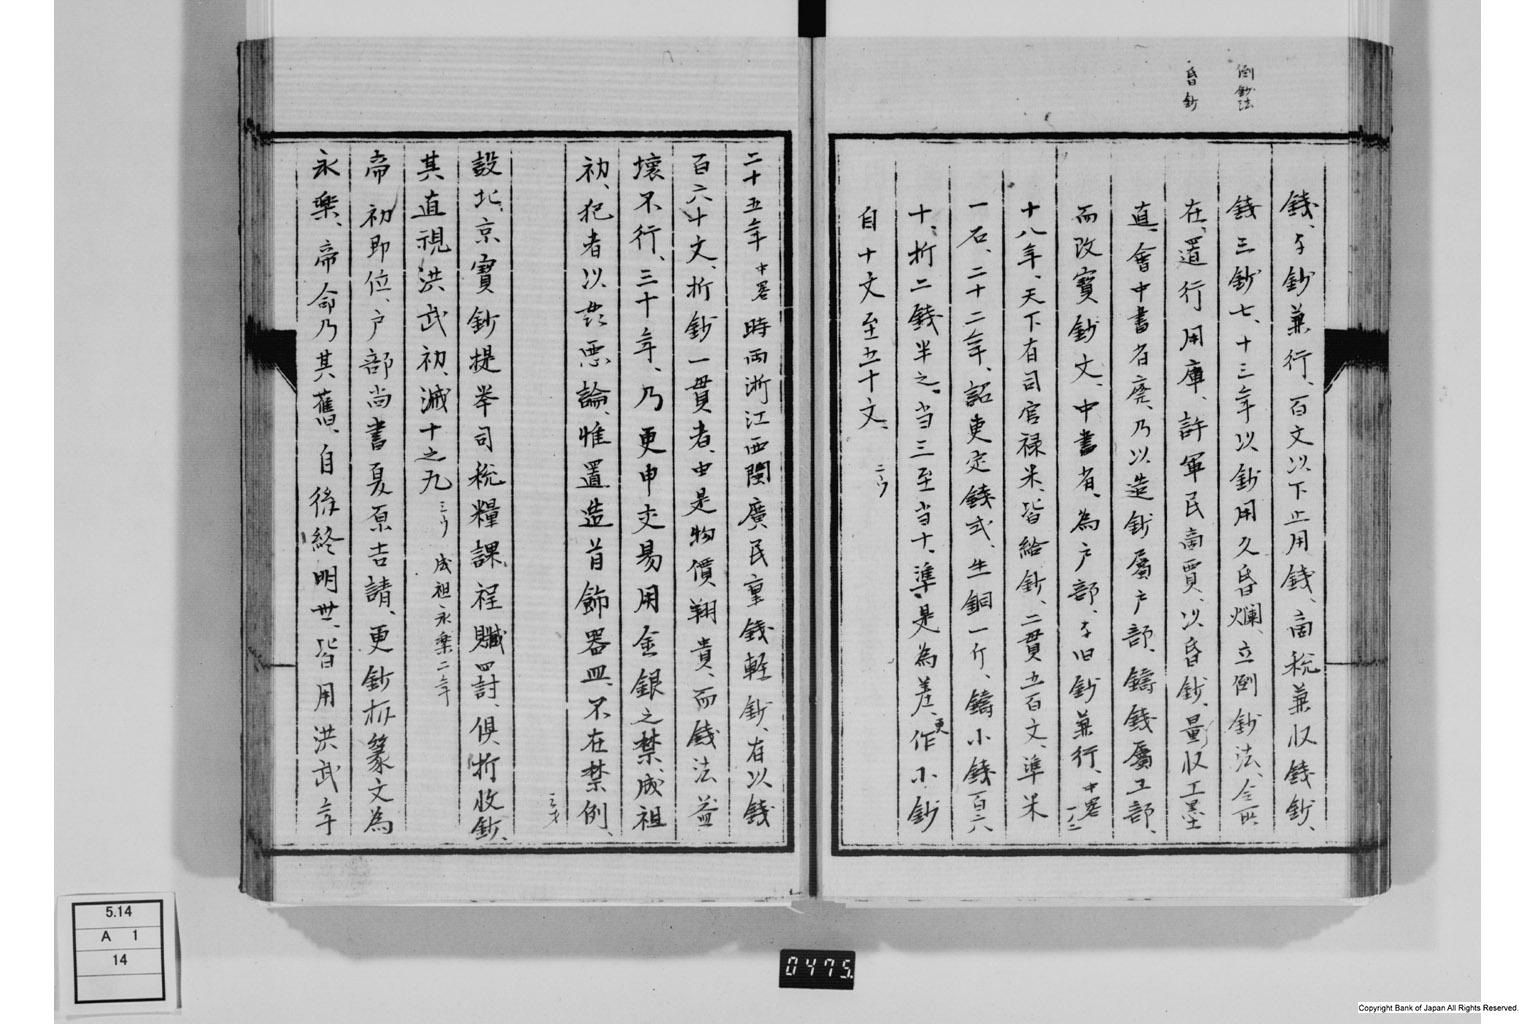 倒鈔法
昏鈔
錢、与鈔兼行、百文以下止用錢、商税兼収錢鈔、
錢三鈔七、十三年以鈔用久昏爛、立倒鈔法、令所
在、置行用庫、許軍民商賈、以昏鈔、量収工墨
直、會中書省廃、乃以造鈔屬户部、鑄錢屬工部、
而改寶鈔文、中書省、為户部、与旧鈔兼行、中畧
十八年、天下有司官禄米、皆給鈔、二貫五百文、準米
一石、二十二年、詔更定錢式、生銅一斤、鑄小錢百六
十、折二錢半之、当三至当十、準是為差、更作小鈔
自十文至五十文、二ウ
二十五年中畧時両浙江西閩廣民重錢軽鈔、有以錢
百六十文、折鈔一貫者、由是物價翔貴、而錢法益
壊不行、三十年、乃更申交易用金銀之禁、成祖
初、犯者以姦悪論、惟置造首飾器皿、不在禁例、
設北京寶鈔提挙司税糧課程贓罰、俱折收鈔、
其直視洪武初、減十之九 三ウ 成祖永樂二年
帝初即位、户部尚書夏原吉請、更鈔板篆文為
永樂、帝命乃其舊、自後終明世、皆用洪武年
5.14
A 1
14
0475
Copyright Bank of Japan All Rights Reserved.